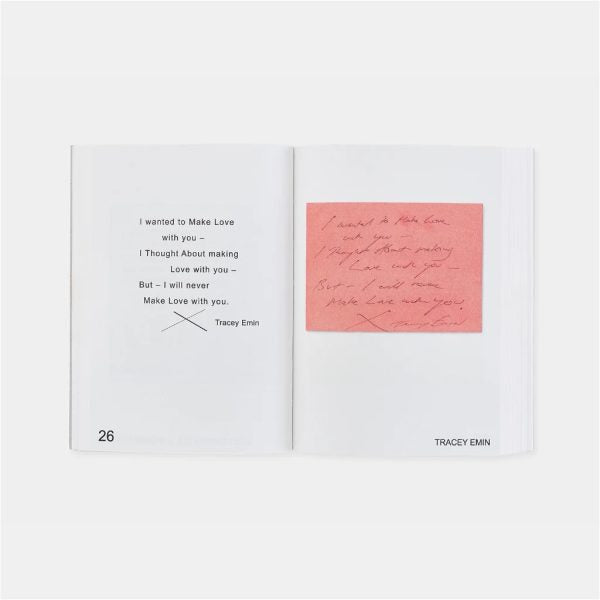 I wanted to Make Love
with you –
I Thought About making
Love with you –
But – I will never
Make Love with you.
Tracey Emin
26
I wanted to Make Love
with you –
I Thought About making
Love with you –
But – I will never
Make Love with you.
X Tracey Emin
TRACEY EMIN